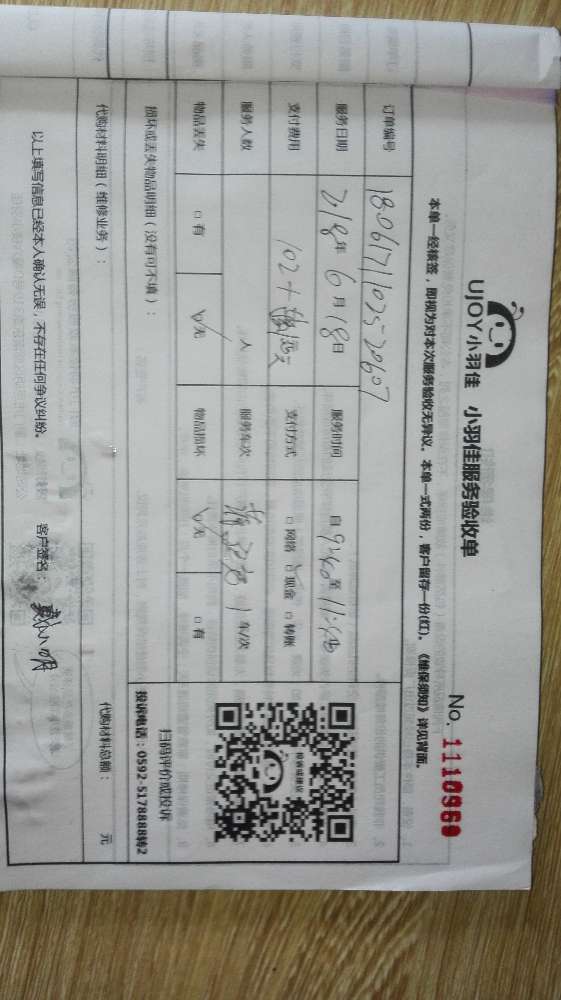 UJOY小羽佳 小羽佳服务验收单
No. 1110969
本单一经核签，即视为对本次服务验收无异议。本单一式两份，客户留存一份(红)。《维保须知》详见背面。
订单编号 1806171102520607
服务日期 218年6月18日 服务时间 自9:40至11:40
支付费用 102+ 支付方式 □网络 ☑现金 □转账
服务人数 人 服务车次 1车/次
物品丢失 □有 ☑无 物品损坏 ☑无 □有
损坏或丢失物品明细（没有可不填）：
投诉或建议
扫码评价或投诉
投诉电话：0592-5178888转2
代购材料明细（维修业务）： 代购材料总额： 元
以上填写信息已经本人确认无误，不存在任何争议纠纷。 客户签名：